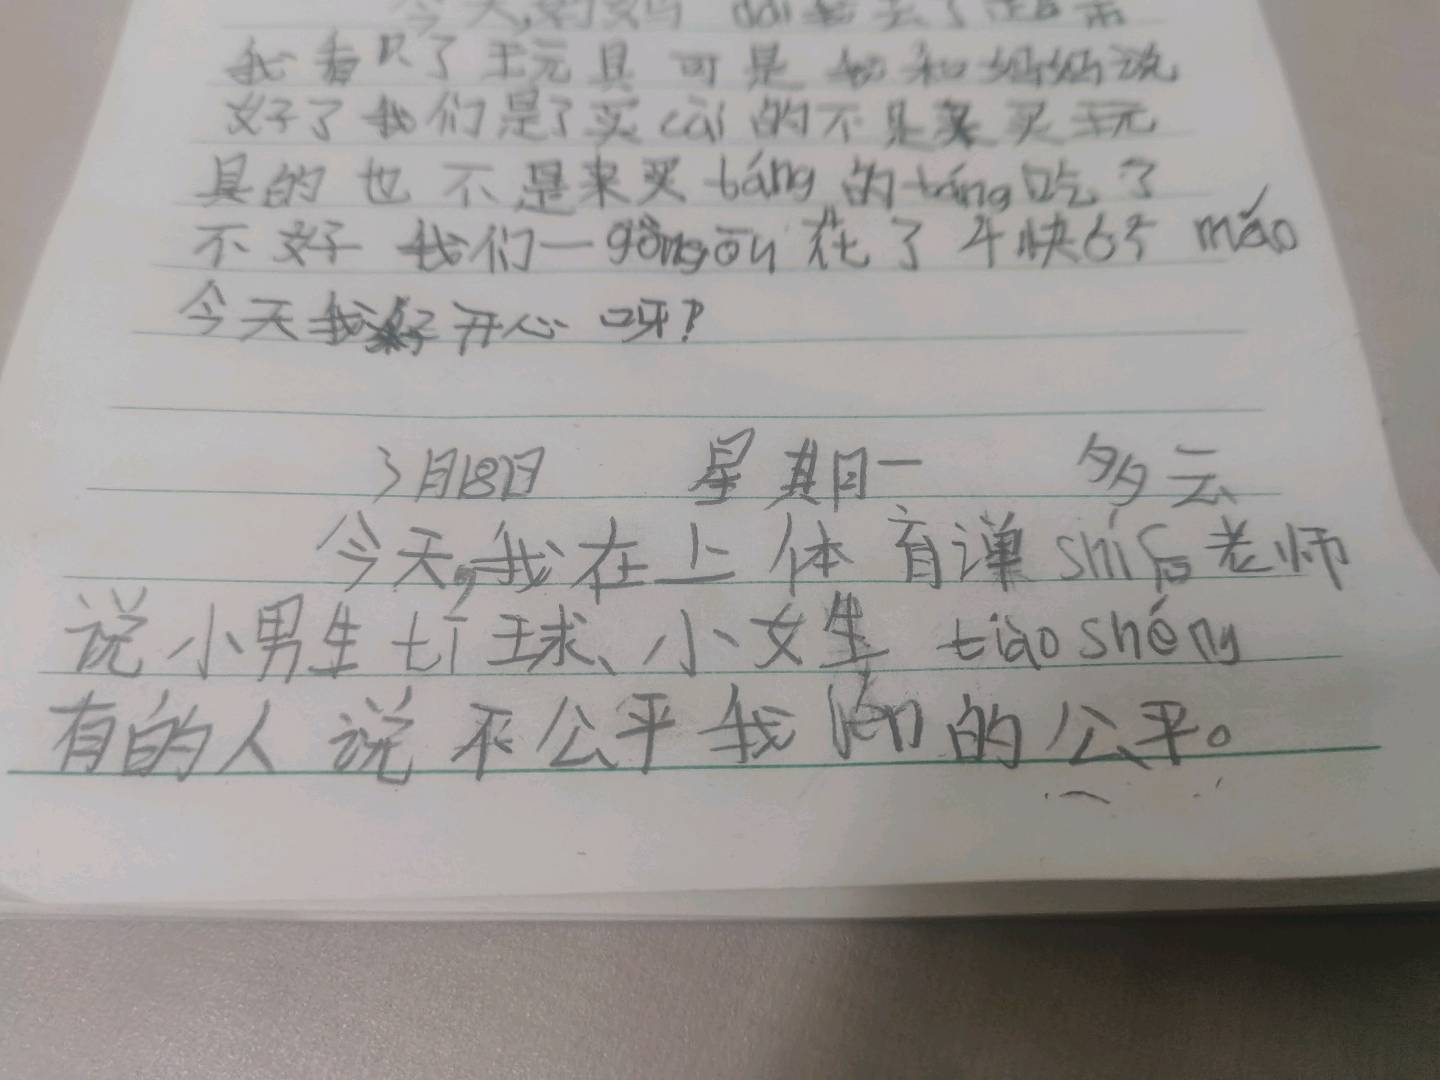 今天,妈妈dai我去了超市
我看只了玩具可是我和妈妈说
好了我们是了买cài的不是来买玩
具的也不是来买táng的táng吃了
不好我们一gòngòng花了4快6个máo
今天我好开心呀?
3月18日 星期一 多云
今天,我在上体育课shí后老师
说小男生tí球、小女生tiàoshéng
有的人说不公平我jén的公平。